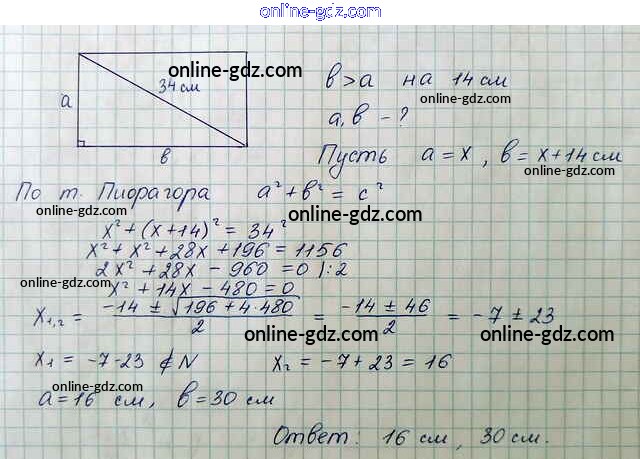 online-gdz.com
online-gdz.com
34 см
a
в
в > a на 14 см
online-gdz.com
a, в - ?
Пусть a = x, в = x + 14 см
online-gdz.com
По т. Пифагора a² + в² = c²
online-gdz.com
online-gdz.com
x² + (x + 14)² = 34²
x² + x² + 28x + 196 = 1156
2x² + 28x - 960 = 0 |:2
online-gdz.com
x² + 14x - 480 = 0
x₁,₂ = (-14 ± √(196 + 4·480))/2 = (-14 ± 46)/2 = -7 ± 23
online-gdz.com
online-gdz.com
online-gdz.com
x₁ = -7-23 ∉ N x₂ = -7 + 23 = 16
online-gdz.com
a = 16 см, в = 30 см
online-gdz.com
Ответ: 16 см, 30 см.
online-gdz.com